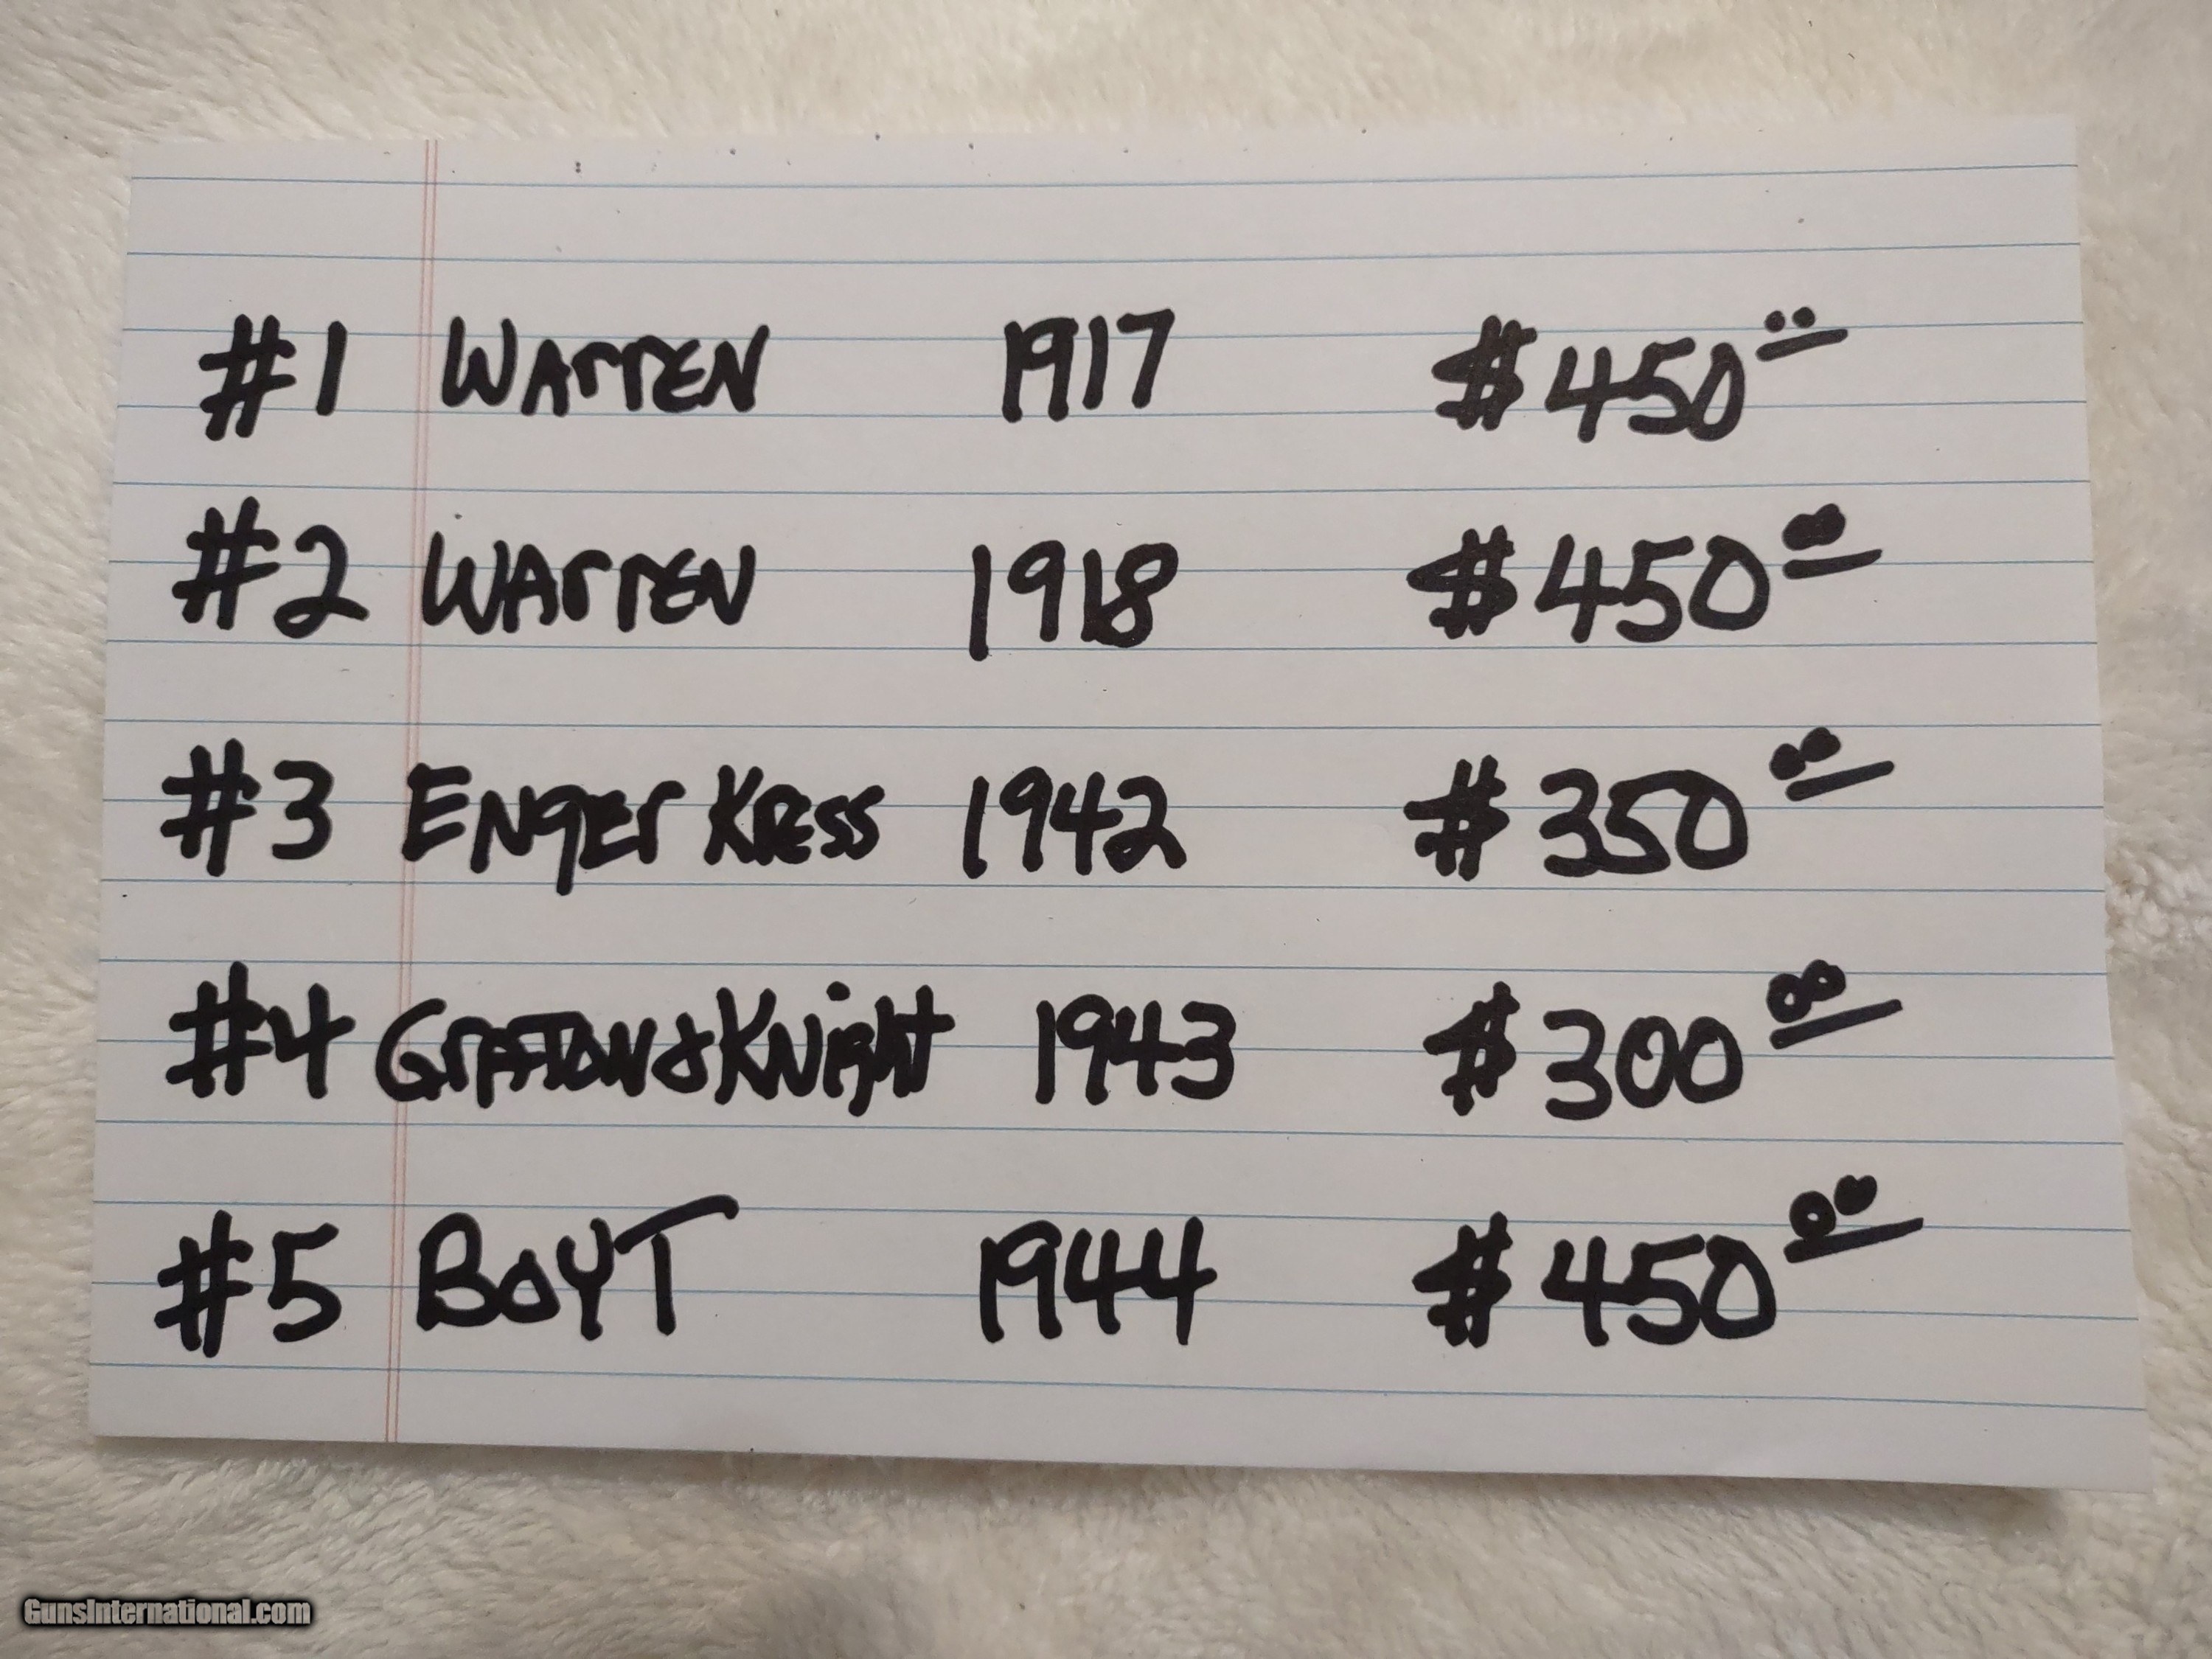 #1 WArrEN 1917 $450 00
#2 WArrEN 1918 $450 00
#3 ENgEr KrESS 1942 $350 00
#4 GrAFTON & KNigHt 1943 $300 00
#5 BOYT 1944 $450 00
GunsInternational.com